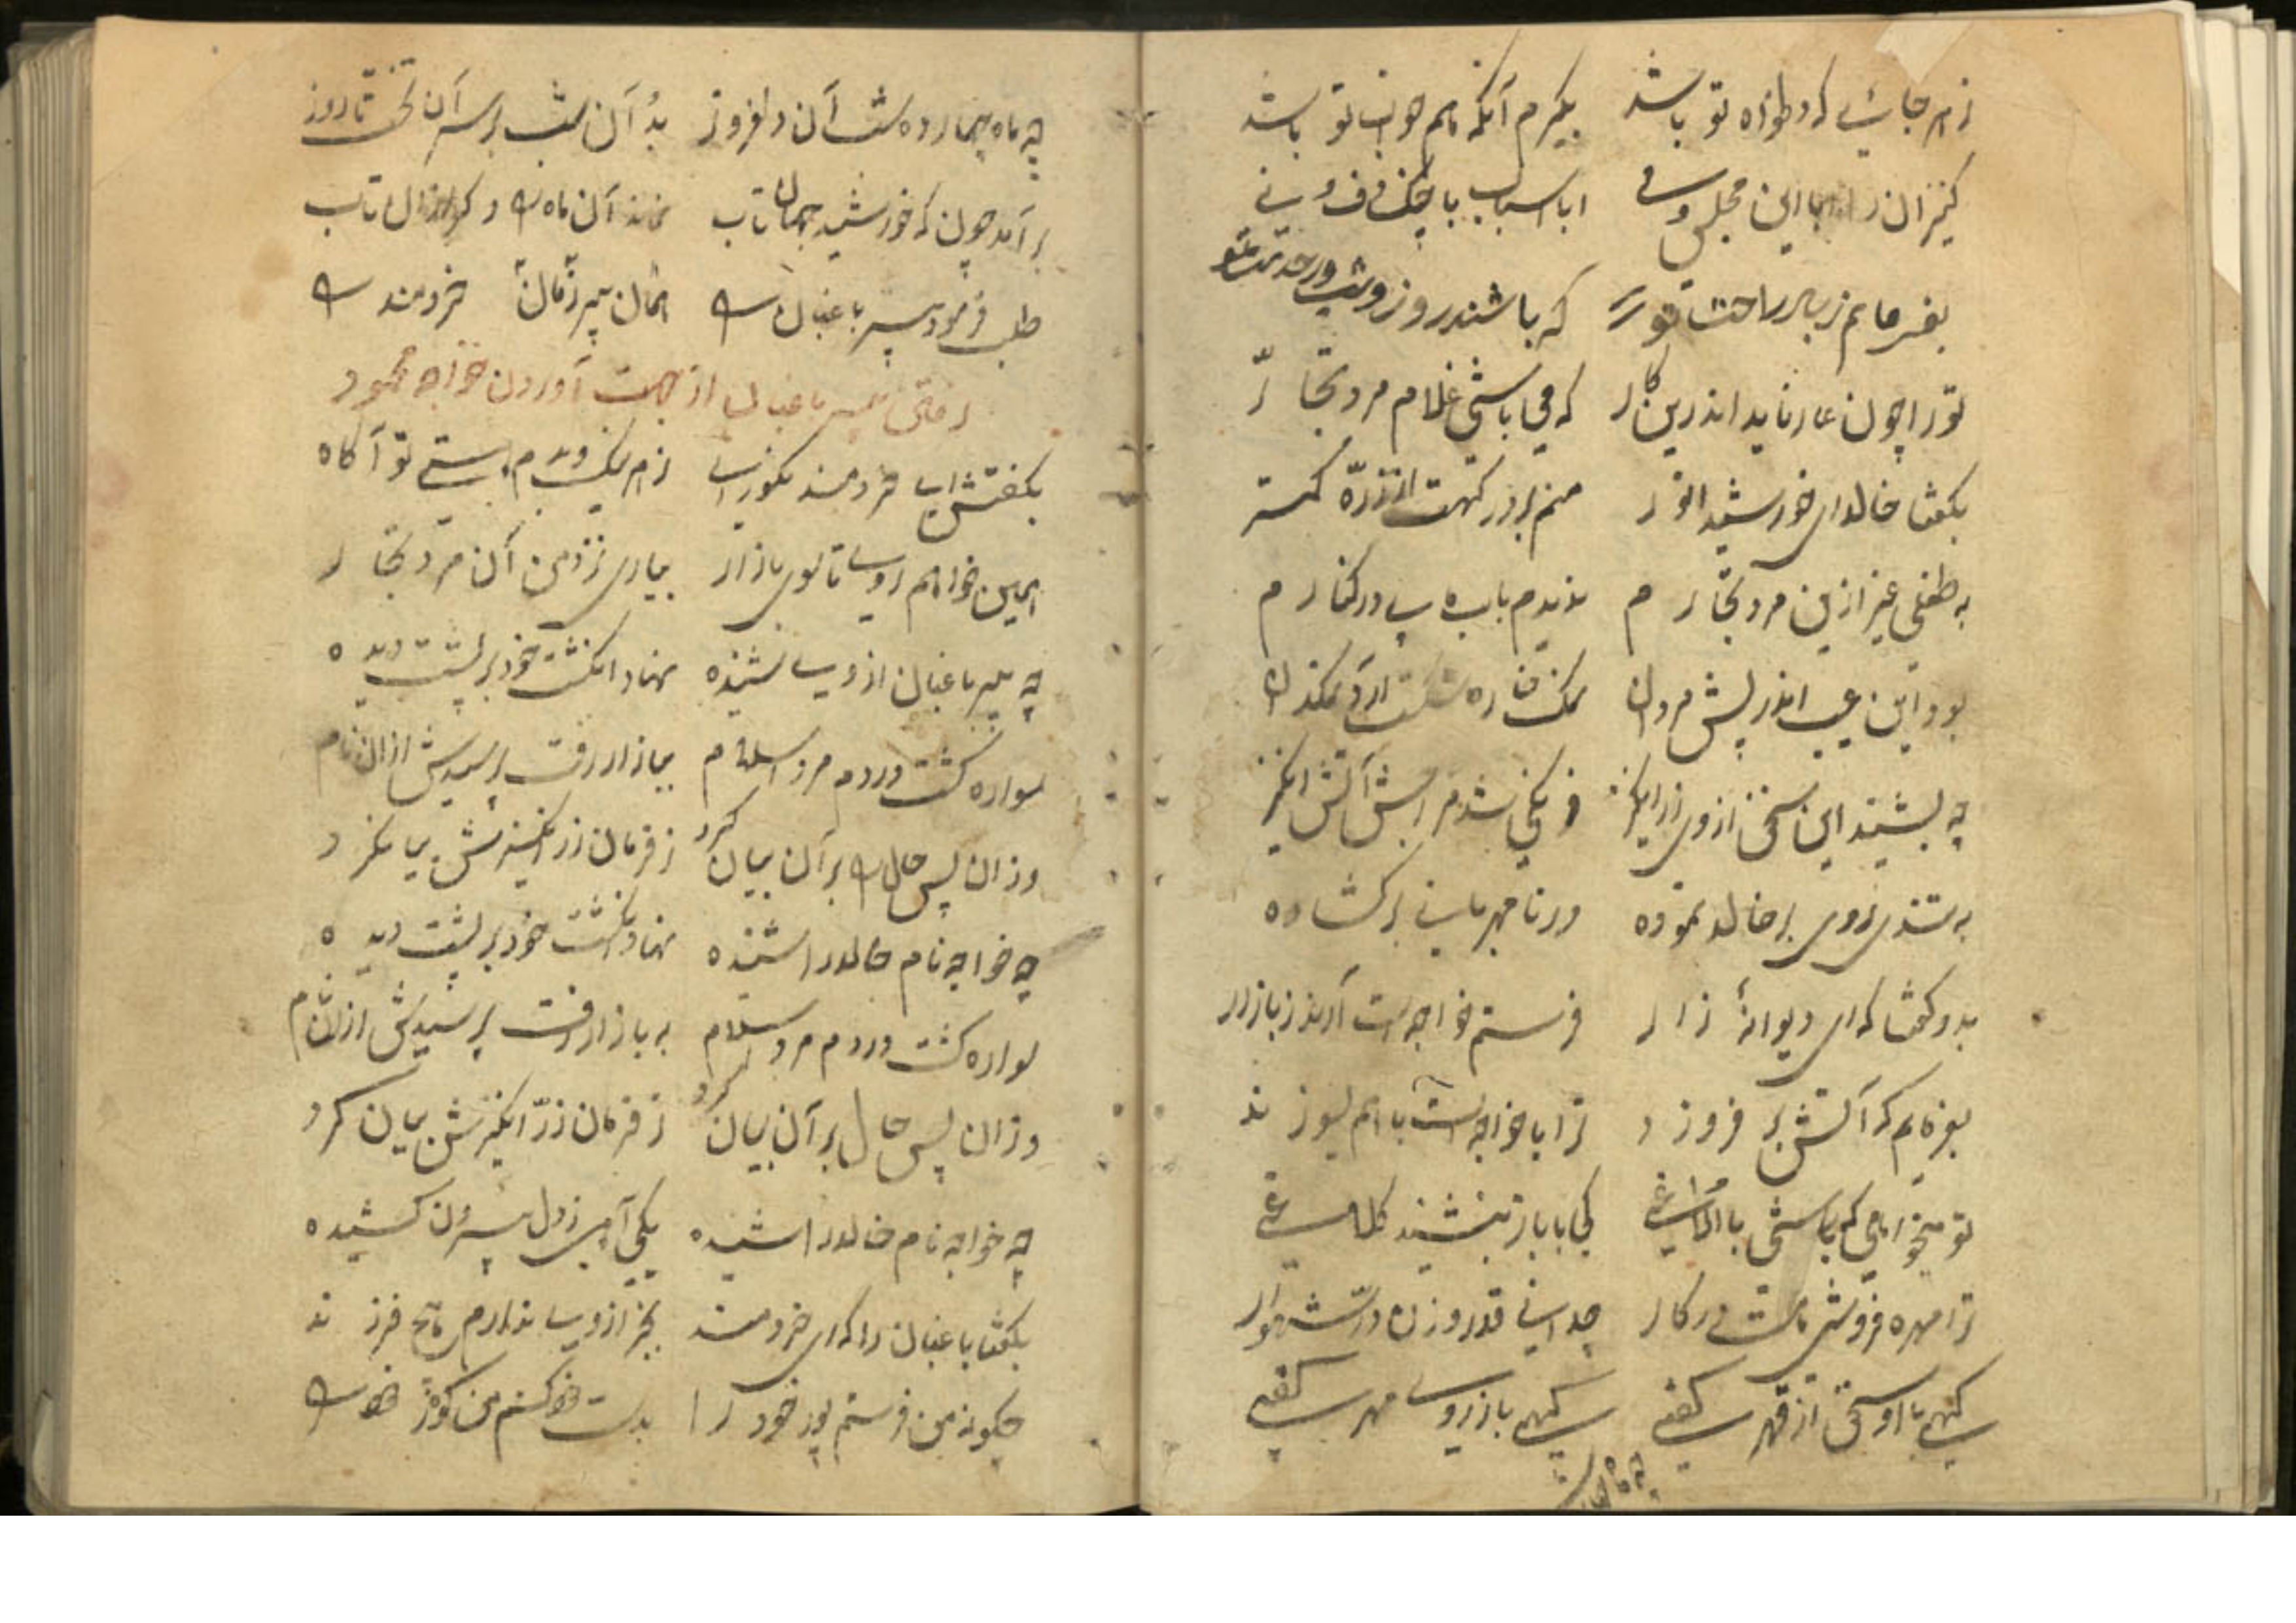 ز هر جائی که دلخواه تو باشد بگیرم آنکه هم خواب تو باشد
کنیزان را این مجلس و می ابا اسباب با چنگ و دف و نی
بفرمایم ز بهر راحت تو را که باشند روز و شب در خدمت تو
تو را چون عار ناید اندرین کار که می باشی غلام مرد تجار
بگفتا خالدای خورشید انور منم بر درگهت از ذره کمتر
به طفلی غیر ازین مرد تجارم ندیدم باب بی در کنارم
بود این عیب اندر پیش مردان نمک
چه بشنید این سخن از وی زر انگیز شدم آتش انگیز
به تندی روی بر خالد نموده در نا مهربانی برگشاده
بدو گفتا که ای دیوانهٔ زار فرستم خواجه ات آرند ز بازار
بفرمایم که آتش بر فروزد ترا با خواجه ات باهم بسوزند
تو میخواهی که باشی با الاغی کی با باز بنشیند کلاغی
ترا مهره فروشی هست در کار چه دانی قدر وزن در شهوار
گهی با او سخن از قهر گفتی گهی باز از روی مهر گفتی
چه ماه
چه ماه چهارده شب آن دلفروز بد آن شب بر سر آن تخت تا روز
بر آمد چون که خورشید جهان تاب نماند آن ماه را دگر از آن تاب
طلب فرمود پیر باغبان را همان پیر زمان خردمند را
رفتن پیر باغبان از جهت آوردن خواجه محمود
بگفتش ای خردمند نکو رای ز هر نیک و بدم هستی تو آگاه
همین خواهم روی تا سوی بازار بیاری نزد من آن مرد تجار
چه پیر باغبان از وی شنیده نهاد انگشت خود بر پشت دیده
سواره گشت در دم مرد اسلام ببازار رفت پرسیدش از آن نام
وز آن پس حال را بر آن بیان کرد ز فرمان زر انگیزش بیا کرد
چه خواجه نام خالد را شنیده نهاد انگشت خود بر پشت دیده
سواره گشت در دم مرد اسلام به بازار رفت پرسیدش از آن نام
وز آن پس حال بر آن بیان کرد ز فرمان زر انگیزش بیان کرد
چه خواجه نام خالد را شنیده یکی آهی ز دل بیرون کشیده
بگفتا باغبان را که ای خردمند بجز از وی ندارم هیچ فرزند
چگونه من فرستم پور خود را بدست خود کنم من گور خود را